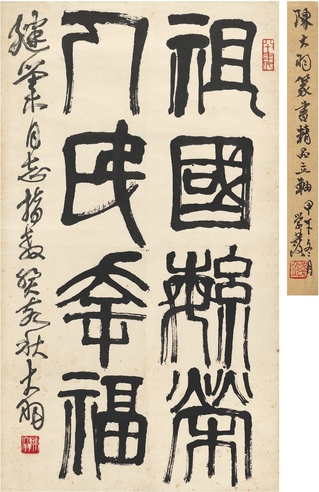 祖國繁榮
人民幸福
業同志指教癸亥秋大羽
陳大羽篆書精品立軸
甲午冬月